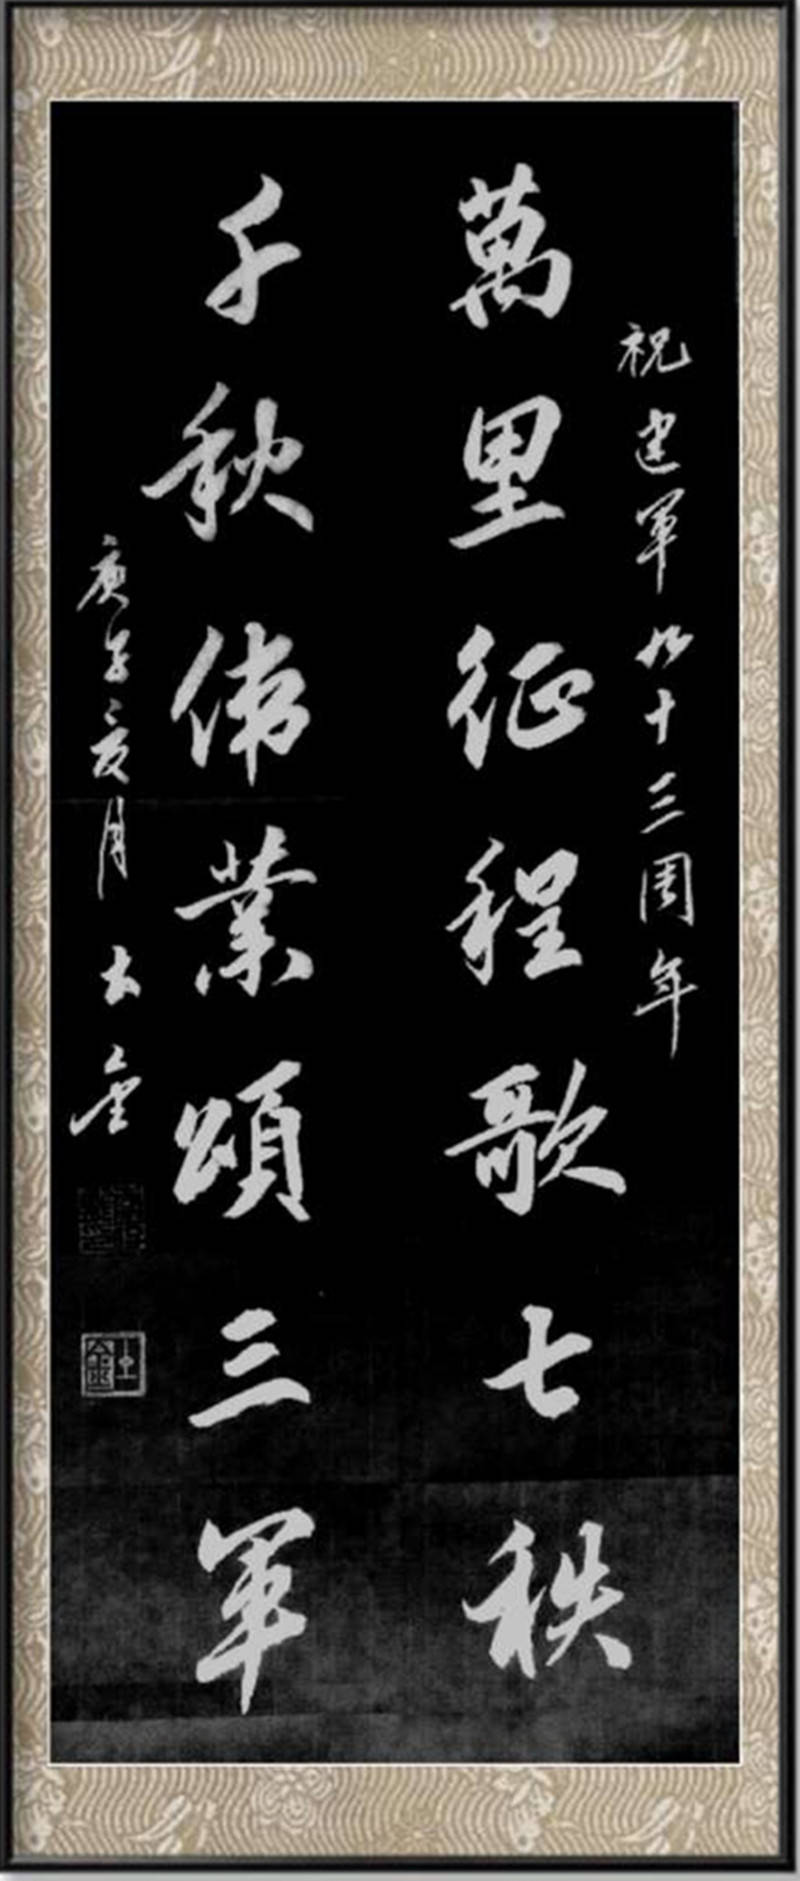 祝建軍九十三周年
萬里征程歌七秩
千秋偉業頌三軍
庚子夏月
金